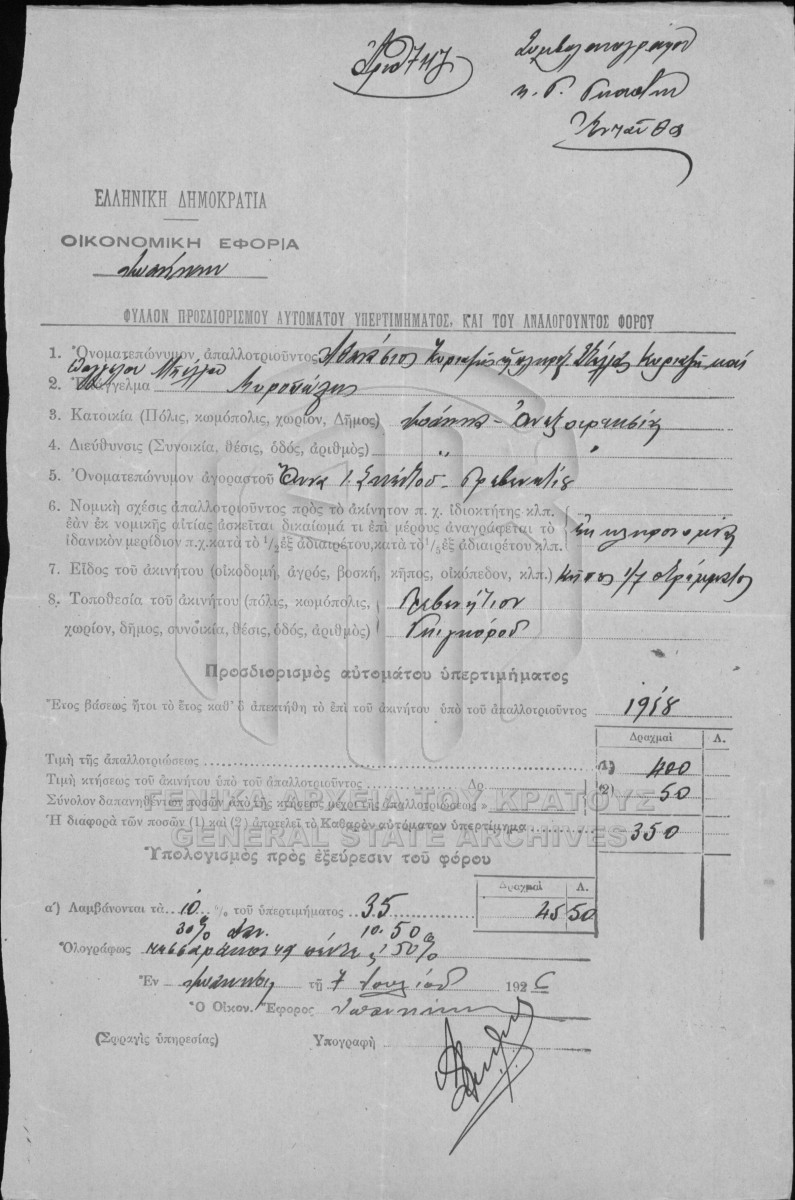 Ἀριθ 747
Συμβολαιογράφον
κ. Γ.
Ἐνταῦθα
ΕΛΛΗΝΙΚΗ ΔΗΜΟΚΡΑΤΙΑ
ΟΙΚΟΝΟΜΙΚΗ ΕΦΟΡΙΑ
ΦΥΛΛΟΝ ΠΡΟΣΔΙΟΡΙΣΜΟΥ ΑΥΤΟΜΑΤΟΥ ΥΠΕΡΤΙΜΗΜΑΤΟΣ, ΚΑΙ ΤΟΥ ΑΝΑΛΟΓΟΥΝΤΟΣ ΦΟΡΟΥ
1. Ὀνοματεπώνυμον, ἀπαλλοτριοῦντος Ἀθανάσιος καὶ
2. Ἐπάγγελμα
3. Κατοικία (Πόλις, κωμόπολις, χωρίον, Δῆμος)
4. Διεύθυνσις (Συνοικία, θέσις, ὁδός, ἀριθμὸς) " "
5. Ὀνοματεπώνυμον ἀγοραστοῦ
6. Νομικὴ σχέσις ἀπαλλοτριοῦντος πρὸς τὸ ἀκίνητον π. χ. ἰδιοκτήτης κλπ.
ἐὰν ἐκ νομικῆς αἰτίας ἀσκεῖται δικαίωμά τι ἐπὶ μέρους ἀναγράφεται τὸ
ἰδανικὸν μερίδιον π.χ. κατὰ τὸ 1/2 ἐξ ἀδιαιρέτου, κατὰ τὸ 1/5 ἐξ ἀδιαιρέτου κλπ. ἐκ κληρονομίας
7. Εἶδος τοῦ ἀκινήτου (οἰκοδομή, ἀγρός, βοσκή, κῆπος, οἰκόπεδον, κλπ.) Κῆπος 1/7 στρέμματος
8. Τοποθεσία τοῦ ἀκινήτου (πόλις, κωμόπολις, Γρεβενήτιον
χωρίον, δῆμος, συνοικία, θέσις, ὁδός, ἀριθμὸς)
Προσδιορισμὸς αὐτομάτου ὑπερτιμήματος
Ἔτος βάσεως ἤτοι τὸ ἔτος καθ' ὃ ἀπεκτήθη τὸ ἐπὶ τοῦ ἀκινήτου ὑπὸ τοῦ ἀπαλλοτριοῦντος 1918
Δραχμαὶ Λ.
Τιμὴ τῆς ἀπαλλοτριώσεως (1) 400
Τιμὴ κτήσεως τοῦ ἀκινήτου ὑπὸ τοῦ ἀπαλλοτριοῦντος Δρ.
Σύνολον δαπανηθέντων ποσῶν ἀπὸ τῆς κτήσεως μέχρι τῆς ἀπαλλοτριώσεως » (2) 50
ΓΕΝΙΚΑ ΑΡΧΕΙΑ ΤΟΥ ΚΡΑΤΟΥΣ
Ἡ διαφορὰ τῶν ποσῶν (1) καὶ (2) ἀποτελεῖ τὸ Καθαρὸν αὐτόματον ὑπερτίμημα 350
GENERAL STATE ARCHIVES
Ὑπολογισμὸς πρὸς ἐξεύρεσιν τοῦ φόρου
Δραχμαὶ Λ.
α') Λαμβάνονται τὰ 10 % τοῦ ὑπερτιμήματος 35 45 50
30% 10.50
Ὁλογράφως τεσσαράκοντα πέντε 50%
Ἐν τῇ 7 Ἰουλίου 1926
Ὁ Οἰκον. Ἔφορος
(Σφραγὶς ὑπηρεσίας) Ὑπογραφὴ